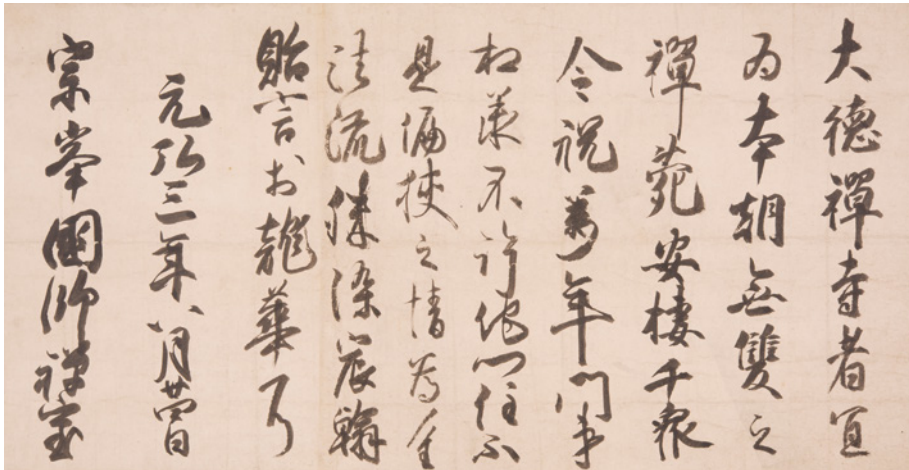 大德禪寺者宜
為本朝無雙之
禪苑安棲千衆
令祝萬年門弟
相承不許他門住不
是偏狹之情為重
法流殊染宸翰
貽言於龍華耳
元弘三年八月廿四日
宗峯國師禪室